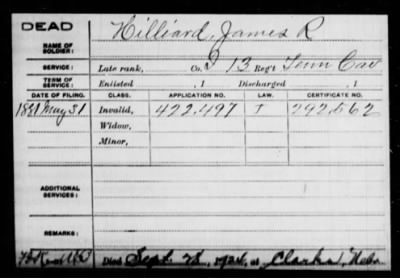 DEAD
NAME OF SOLDIER: Hilliard, James R
SERVICE: Late rank, Co. I 13 Reg't Tenn Cav
TERM OF SERVICE: Enlisted , 1 Discharged , 1
DATE OF FILING. CLASS. APPLICATION NO. LAW. CERTIFICATE NO.
1881 May 31 Invalid, 422,497 292,562
Widow,
Minor,
ADDITIONAL SERVICES:
REMARKS:
Died Sept. 28, 1924, at Clarks, Nebr